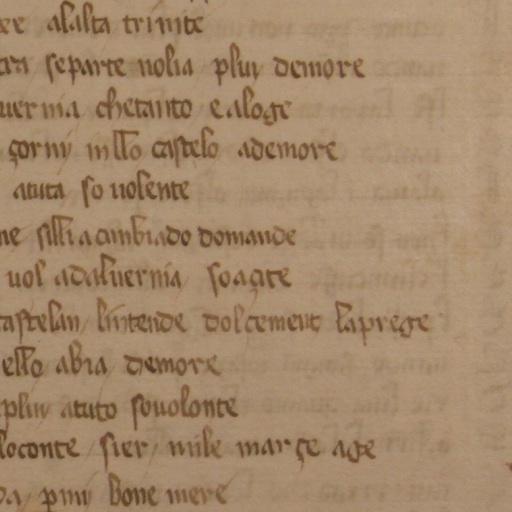 alalta trinite
separte uolia plui demore
uernia chetanto e aloge
çorni in llo castelo ademore
atuta so uolente
ne silli a cunbiado domande
uol adaluernia so açite
castelan lintende dolcement la prege
ello abia demore
plui atuto souolonte
loconte sier mile març age
pmi bone mere